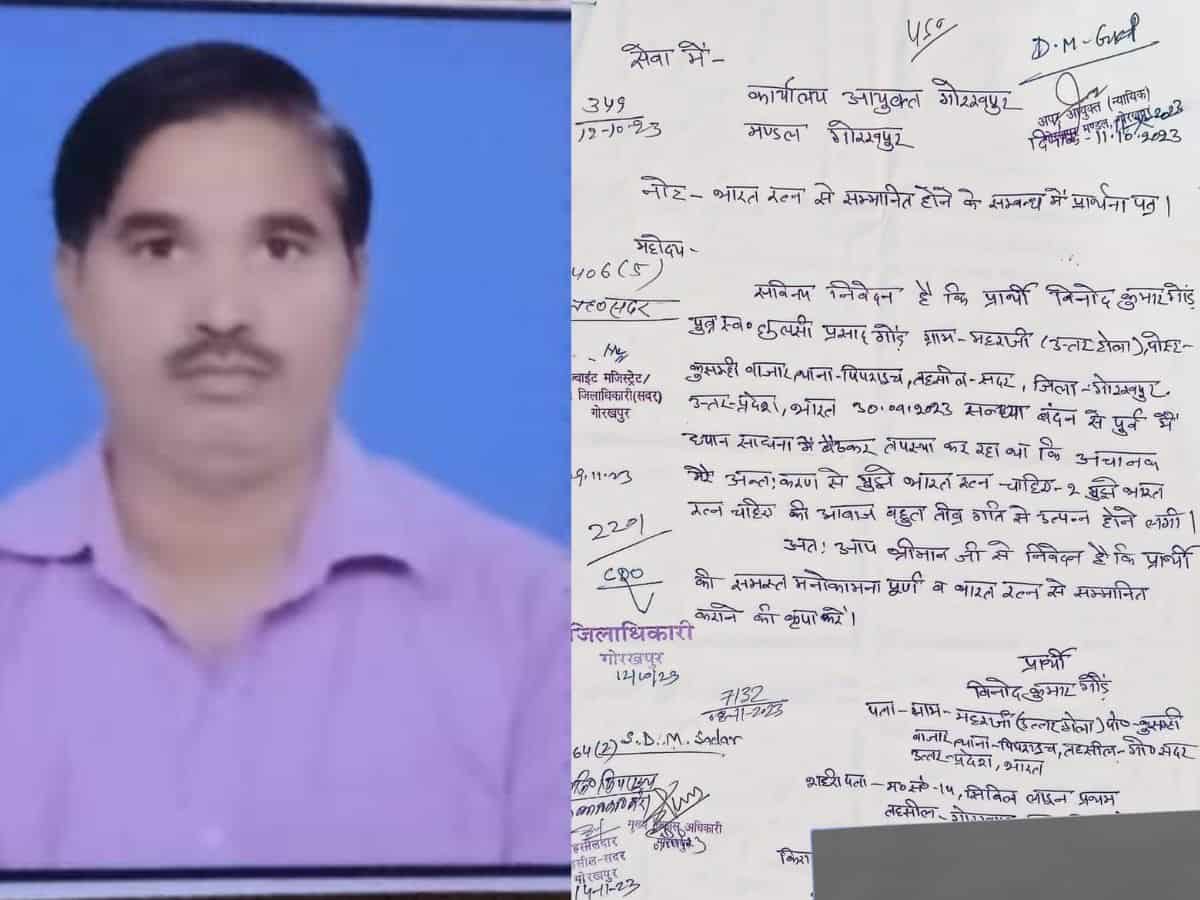 450
D.M-Gkd
सेवा में-
349
12-10-23
कार्यालय आयुक्त गोरखपुर
मण्डल गोरखपुर
अपर आयुक्त (न्यायिक)
मण्डल, गोरखपुर
दिनांक-11.10.2023
नोट- भारत रत्न से सम्मानित होने के सम्बन्ध में प्रार्थना पत्र।
महोदय-
406(5)
सविनय निवेदन है कि प्रार्थी विनोद कुमार गौंड़
पुत्र स्व० तुलसी प्रसाद गौंड़ ग्राम-महराजी (उत्तर टोला), पोस्ट-
कुसम्ही बाजार, थाना-पिपराइच, तहसील-सदर, जिला-गोरखपुर
उत्तर-प्रदेश, भारत 30.09.2023 सन्ध्या बंदन से पूर्व में
ध्यान साधना में बैठकर तपस्या कर रहा था कि अचानक
मेरे अन्त:करण से मुझे भारत रत्न चाहिए-2 मुझे भारत
रत्न चाहिए की आवाज बहुत तीव्र गति से उत्पन्न होने लगी।
अत: आप श्रीमान जी से निवेदन है कि प्रार्थी
की समस्त मनोकामना पूर्ण व भारत रत्न से सम्मानित
कराने की कृपा करें।
ज्वाइंट मजिस्ट्रेट/
जिलाधिकारी(सदर)
गोरखपुर
9.11.23
2201
CDO
जिलाधिकारी
गोरखपुर
12/10/23
7132
08-11-2023
64(2) S.D.M. Sadar
प्रार्थी
विनोद कुमार गौंड़
पता-ग्राम-महराजी(उत्तर टोला) पो०-कुसम्ही
बाजार, थाना-पिपराइच, तहसील-गो० सदर
उत्तर-प्रदेश, भारत
शहरी पता- म० सं०-14, सिविल लाइन प्रथम
तहसील- गोरखपुर
मुख्य विकास अधिकारी
गोरखपुर
तहसीलदार
तहसील-सदर
गोरखपुर
14-11-23
किरा